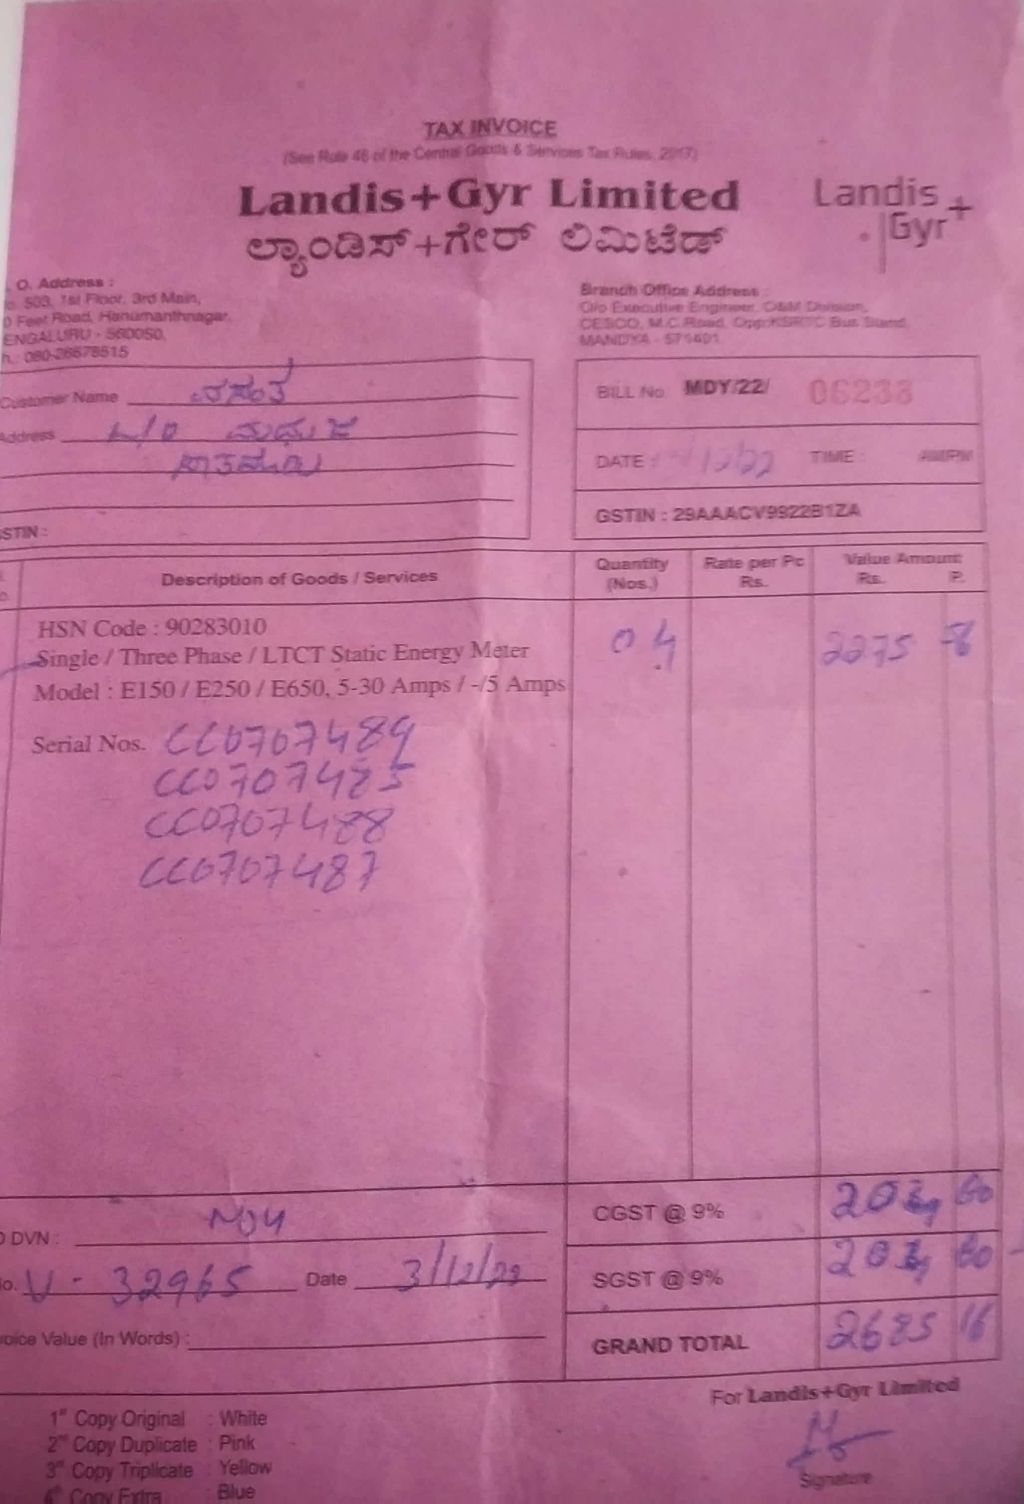 TAX INVOICE
(See Rule 46 of the Central Goods & Services Tax Rules, 2017)
Landis+Gyr Limited
ಲ್ಯಾಂಡಿಸ್+ಗೇರ್ ಲಿಮಿಟೆಡ್
Landis
Gyr+
O. Address :
503, 1st Floor, 3rd Main,
Feet Road, Hanumanthnagar,
ENGALURU - 560050.
080-26678615
Branch Office Address :
O/o Executive Engineer, O&M Division,
CESCO, M.C.Road, Opp:KSRTC Bus Stand,
MANDYA - 571401
Customer Name ವಸಂತ
Address
BILL No MDY/22/ 06238
DATE : /12/22 TIME : AM/PM
GSTIN : 29AAACV9922B1ZA
STIN :
Description of Goods / Services
Quantity (Nos.)
Rate per Pc Rs.
Value Amount Rs. P.
HSN Code : 90283010
Single / Three Phase / LTCT Static Energy Meter
Model : E150 / E250 / E650, 5-30 Amps / -/5 Amps
04 2275
Serial Nos. CC0707489
CC0707485
CC0707488
CC0707487
CGST @ 9% 60
DVN :
V - 32965 Date 3/12/22
SGST @ 9% 60
oice Value (In Words) :
GRAND TOTAL 2685 16
For Landis+Gyr Limited
Signature
1st Copy Original : White
2nd Copy Duplicate : Pink
3rd Copy Triplicate : Yellow
Copy Extra : Blue